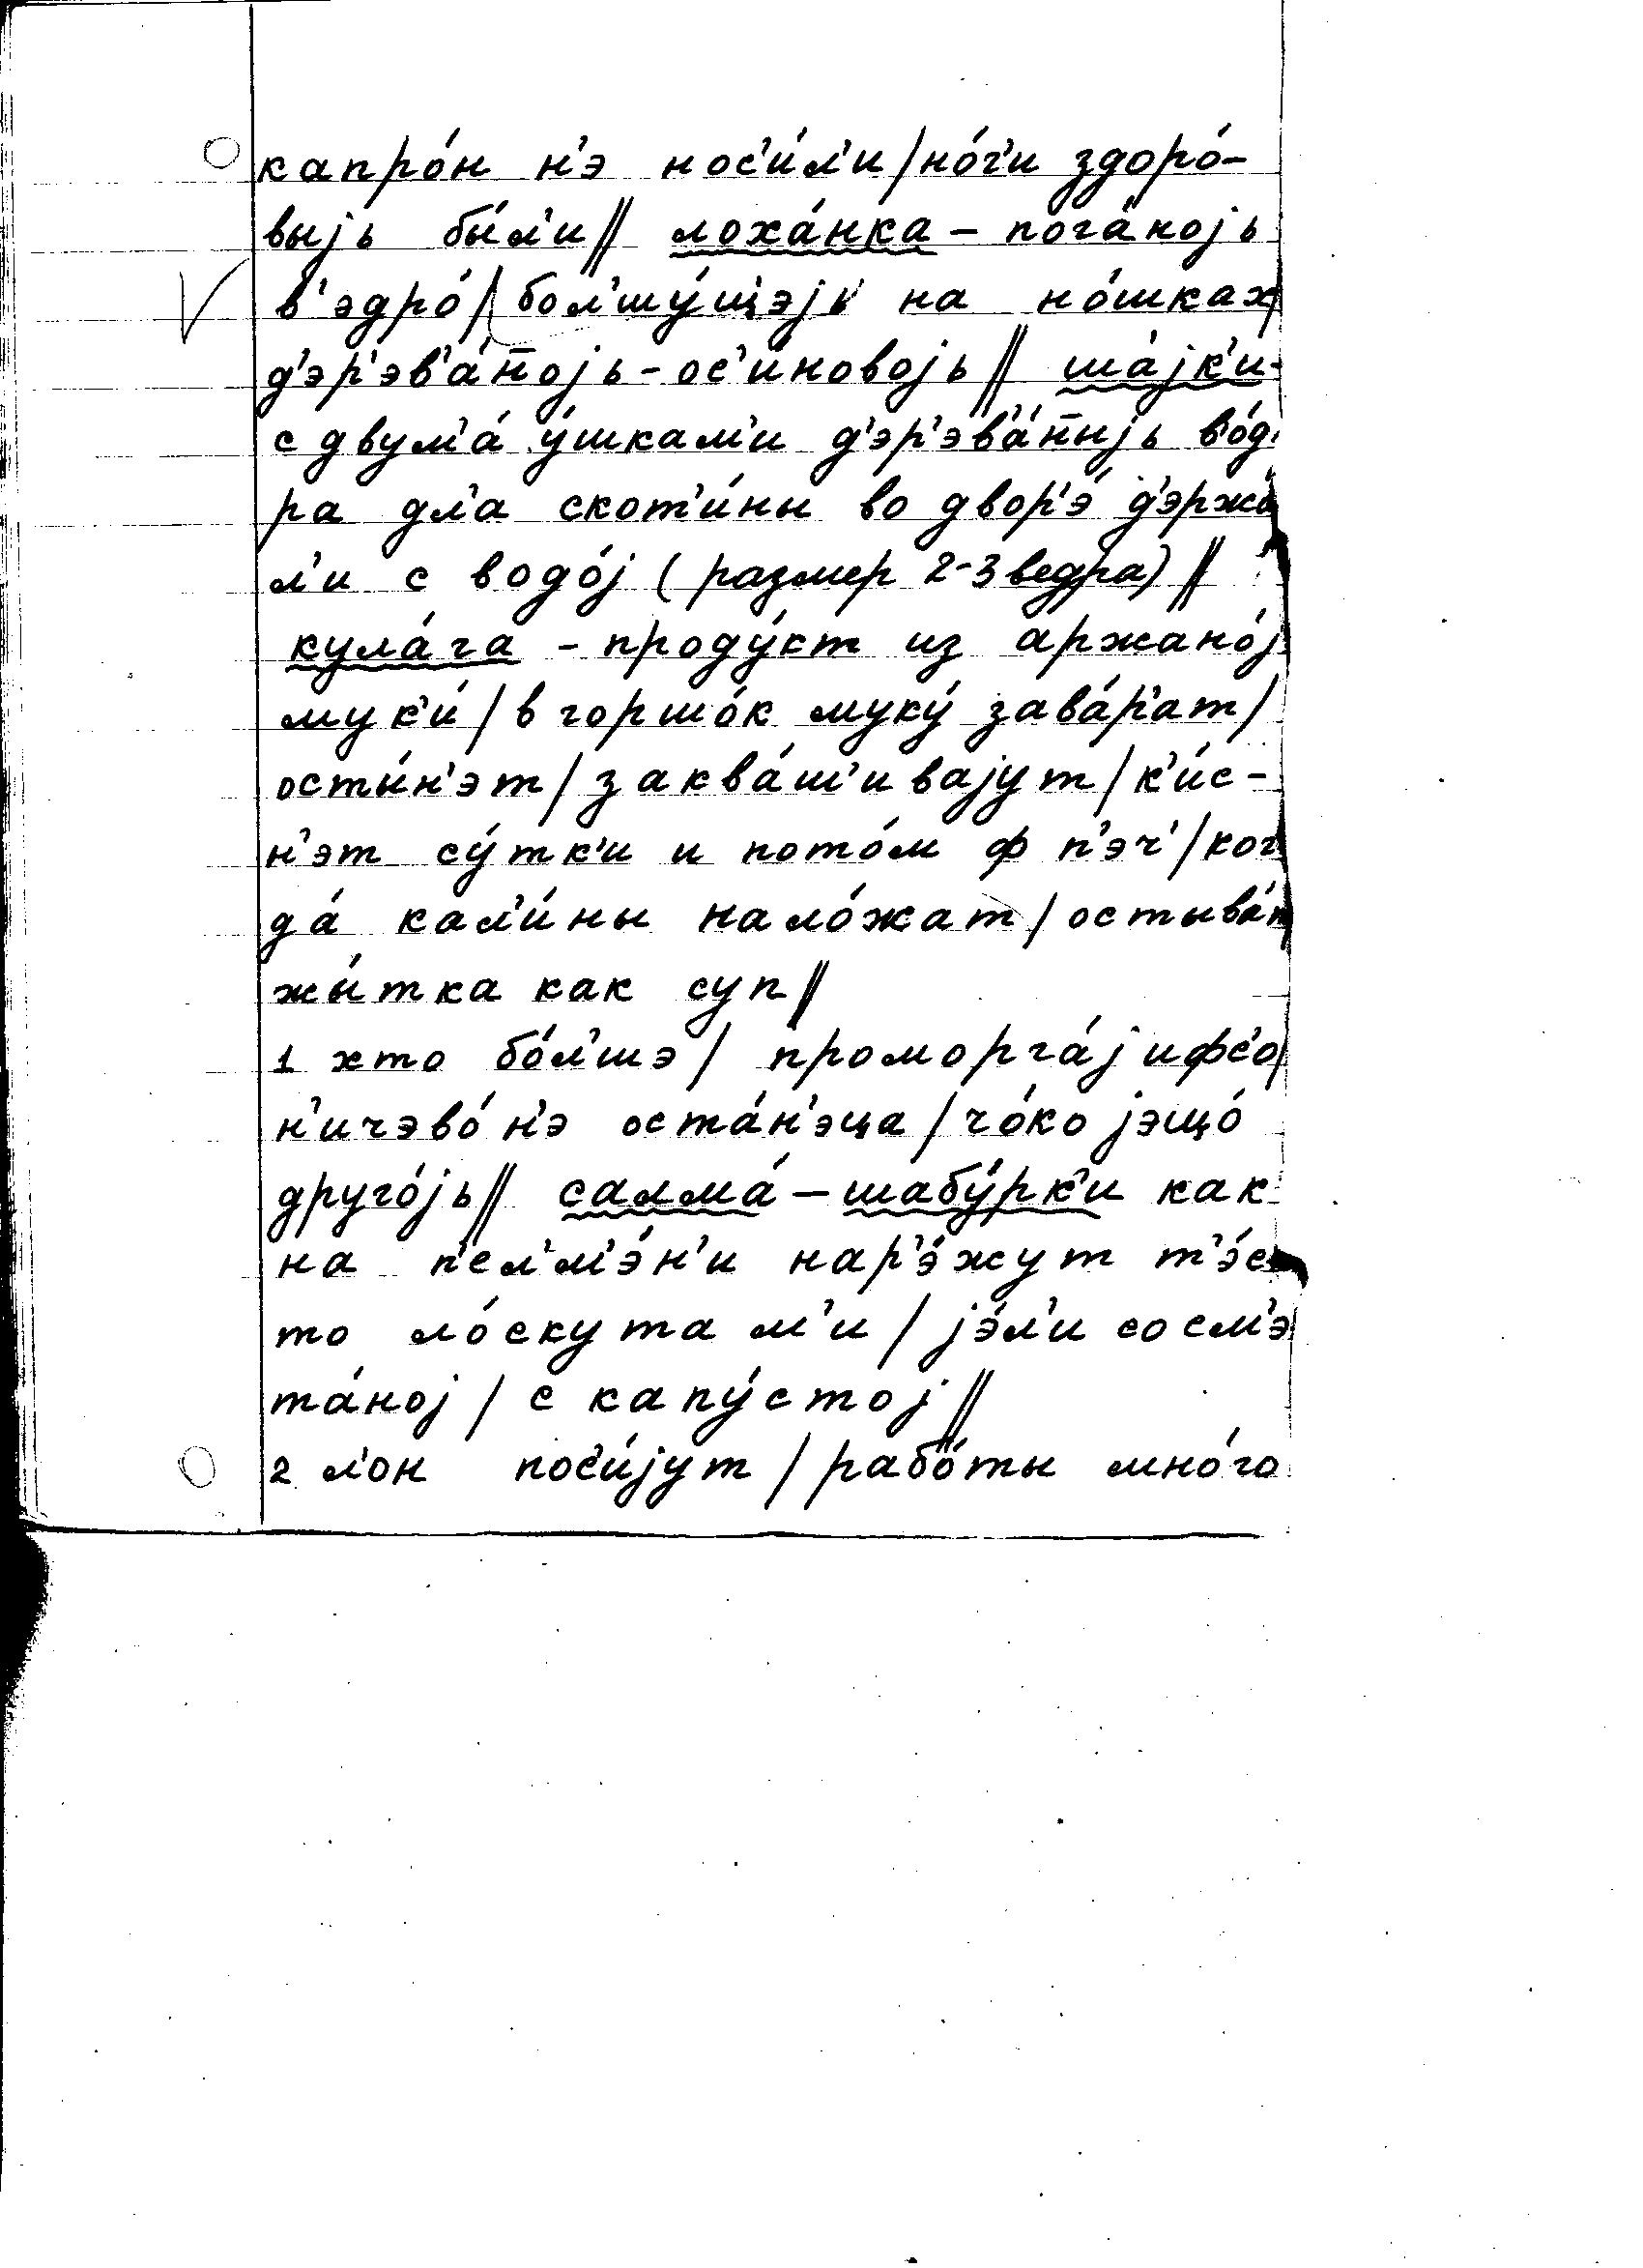 капро́н н'э нос'и́л'и/но́г'и здоро́-
выjь бы́л'и// лоха́нка - пога́ноjь
в'эдро́/бол'шу́щэjь на но́шках/
д'эр'эв'а́н̄оjь-ос'и́новоjь// ша́jк'и-
с двум'а́ у́шкам'и д'эр'эв'а́н̄ыjь в'о́д
ра дл'а скот'и́ны во двор'э́ д'эржа́
л'и с водо́j (размер 2-3 ведра)//
кула́га - проду́кт из аржано́j
мук'и́/в горшо́к муку́ зава́р'ат/
осты́н'эт/заква́ш'иваjут/к'и́с-
н'эт су́тк'и и пото́м ф п'эч'/ког
да́ кал'и́ны нало́жат/остыва́т
жы́тка как суп//
1 хто бо́л'шэ/ проморга́j ифс'о/
н'ичэво́ н'э оста́н'эца/чо́ко jэщо́
друго́jь// салма́ - шабу́рк'и как
на п'ел'м'э́н'и нар'э́жут т'э́с
то ло́скутам'и/jэ́л'и со см'э
та́ноj/с капу́стоj//
2 л'он пос'и́jут/рабо́ты мно́го